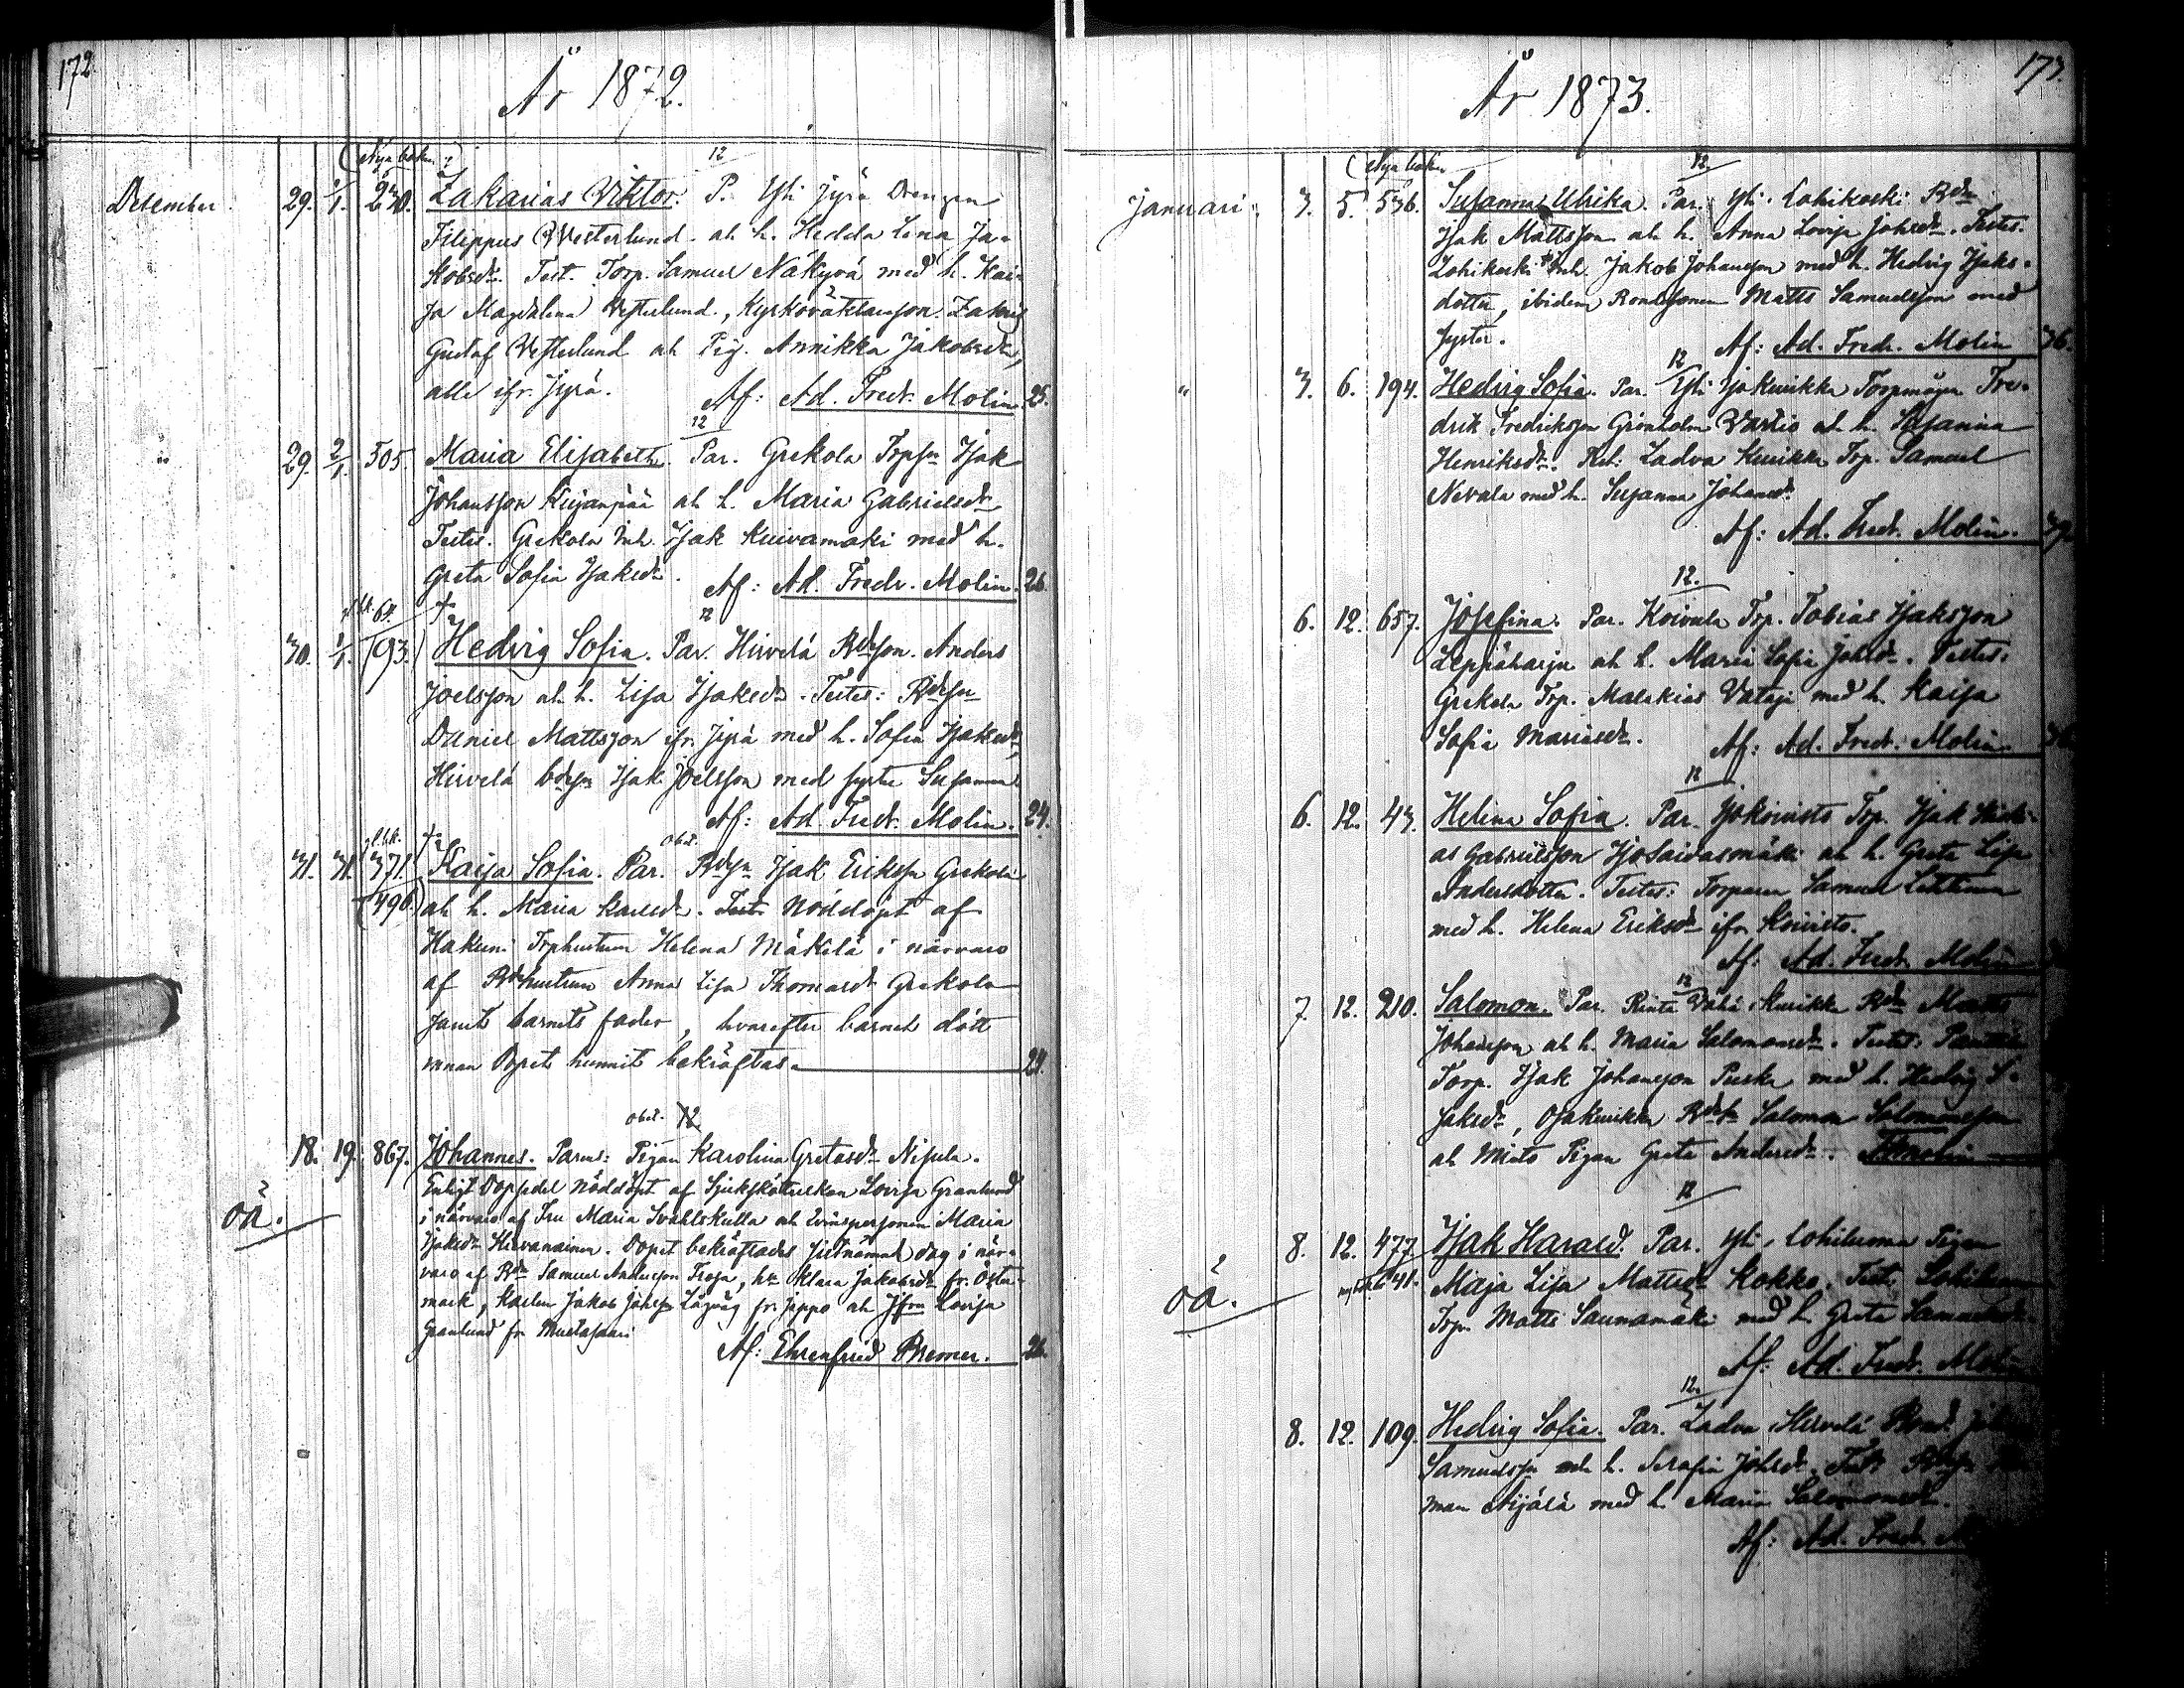 172
År 1872.
(Nya boken:)
12
December. 29. 2/1. 230. Zakarias Viktor. P. Yli Jyrä Drengen
Filippus Westerlund och h. Hedda Lena Ja-
kobsdr. Test. Torp. Samuel Näkyvä med h. Kai-
sa Magdalena Vesterlund, Kyrkoväktareson Zakris
Gustaf Vesterlund och Pig. Annikka Jakobsdr,
alle ifr. Jyrä. Af: Ad. Fredr. Molin. 25.
12
" 29. 2/1. 505. Maria Elisabeth. Par. Grekola Trpsn Isak
Johansson Kujanpää och h. Maria Gabrielsdr
Testes. Grekola Inh. Isak Kuivamäki med h.
Greta Sofia Isaksdr. Af: Ad. Fredr. Molin. 26.
64. † 12
30. 1/1. (93.) Hedvig Sofia. Par. Hirvelä Rdeson. Anders
Joelsson och h. Lisa Isaksdr. Testes: Rdesn
Daniel Mattsson ifr. Jyrä med h. Sofia Isaksdr,
Hirvelä bdesn Isak Joelsson med syster Susanna
Af: Ad. Fredr. Molin. 24.
† obst.
31. 31. 371. Kaisa Sofia. Par. Rdesn Isak Eriksson Grekola
(496.) och h. Maria Karlsdr. Test. Nöddöpt af
Hakuni Trphustrun Helena Mäkelä i närvaro
af Rdehustrun Anna Lisa Thomasdr Grekola
samt barnets fader, hvarefter barnet dött
innan Dopet hunnit bekräftas. 24.
obst. 12
18. 19. 867. Johannes. Parens: Pigan Karolina Gretasdr Nisula.
oä. Enligt Dopsedel nöddöpt af Sjukskötterskan Lovisa Granlund
i närvaro af Fru Maria och Maria
Isaksdr Hirvanainen. Dopet bekräftades sistnämnde dag i när-
varo af Rdn Samuel Andersson Troja, hn Klara Jakobsdr fr. Öster-
mark, Karlen Jakob Johsson fr. Jeppo och Jfrn Lovisa
Granlund fr Mustasaari
Af: Ehrenfried Bremer. 26.
173.
År 1873.
(Nya boken
12
Januari. 3. 5. 536. Susanna Ulrika. Par. Yli. Lohikoski Rdn
Isak Mattsson och h. Anna Lovisa Johsdr. Testes.
Lohikoski Inh. Jakob Johansson med h. Hedvig Isaks-
dotter, ibidem Bondsonen Matts Samuelsson med
syster. Af: Ad. Fredr. Molin 36.
12
" 3. 6. 194. Hedvig Sofia. Par. Yli Torpmågen Fre-
drik Fredriksson Grönholm Vartio och h. Susanna
Henriksdr. Ladva Kurikka Trp. Samuel
Nevala med h. Susanna Johansdr.
Af: Ad. Fredr. Molin.
12.
6. 12. 657. Josefina. Par. Koivula Trp. Tobias Isaksson
Leppäharju och h. Maria Sofia Johsdr. Testes:
Grekola Trp. Malakias Vataja med h. Kaisa
Sofia Mariasdr. Af: Ad. Fredr. Molin.
12
6. 12. 43. Helena Sofia. Par. Trp. Isak
as Gabrielsson och h. Greta Lisa
Andersdotter. Testes: Torparen Samuel
med h. Helena Eriksdr ifr Koivisto.
Af: Ad. Fredr. Molin
12
7. 12. 210. Salomon. Par. Rinta Vähä Kurikka Rdn Matts
Johansson och h. Maria Salomonsdr. Testes:
Torp. Isak Johansson Puska med h. Hedvig I-
saksdr, Ojakurikka Rdesn Salomon Salomonsson
och Pigan Greta Andersdr.
12
8. 12. 477. Isak Harald. Par. Yli, Lohiluoma Pigan
oä. 641. Maja Lisa Mattsdr Kokko. Test.
Trp. Matts Saunamäki med h Greta
Af: Ad. Fredr. Molin
12.
8. 12. 109. Hedvig Sofia. Par. Ladva Hirvelä
Samuelsson och h. Serafia Johsdr. Test.
man Äijälä med h. Maria Salomonsdr.
Af: Ad. Fredr.